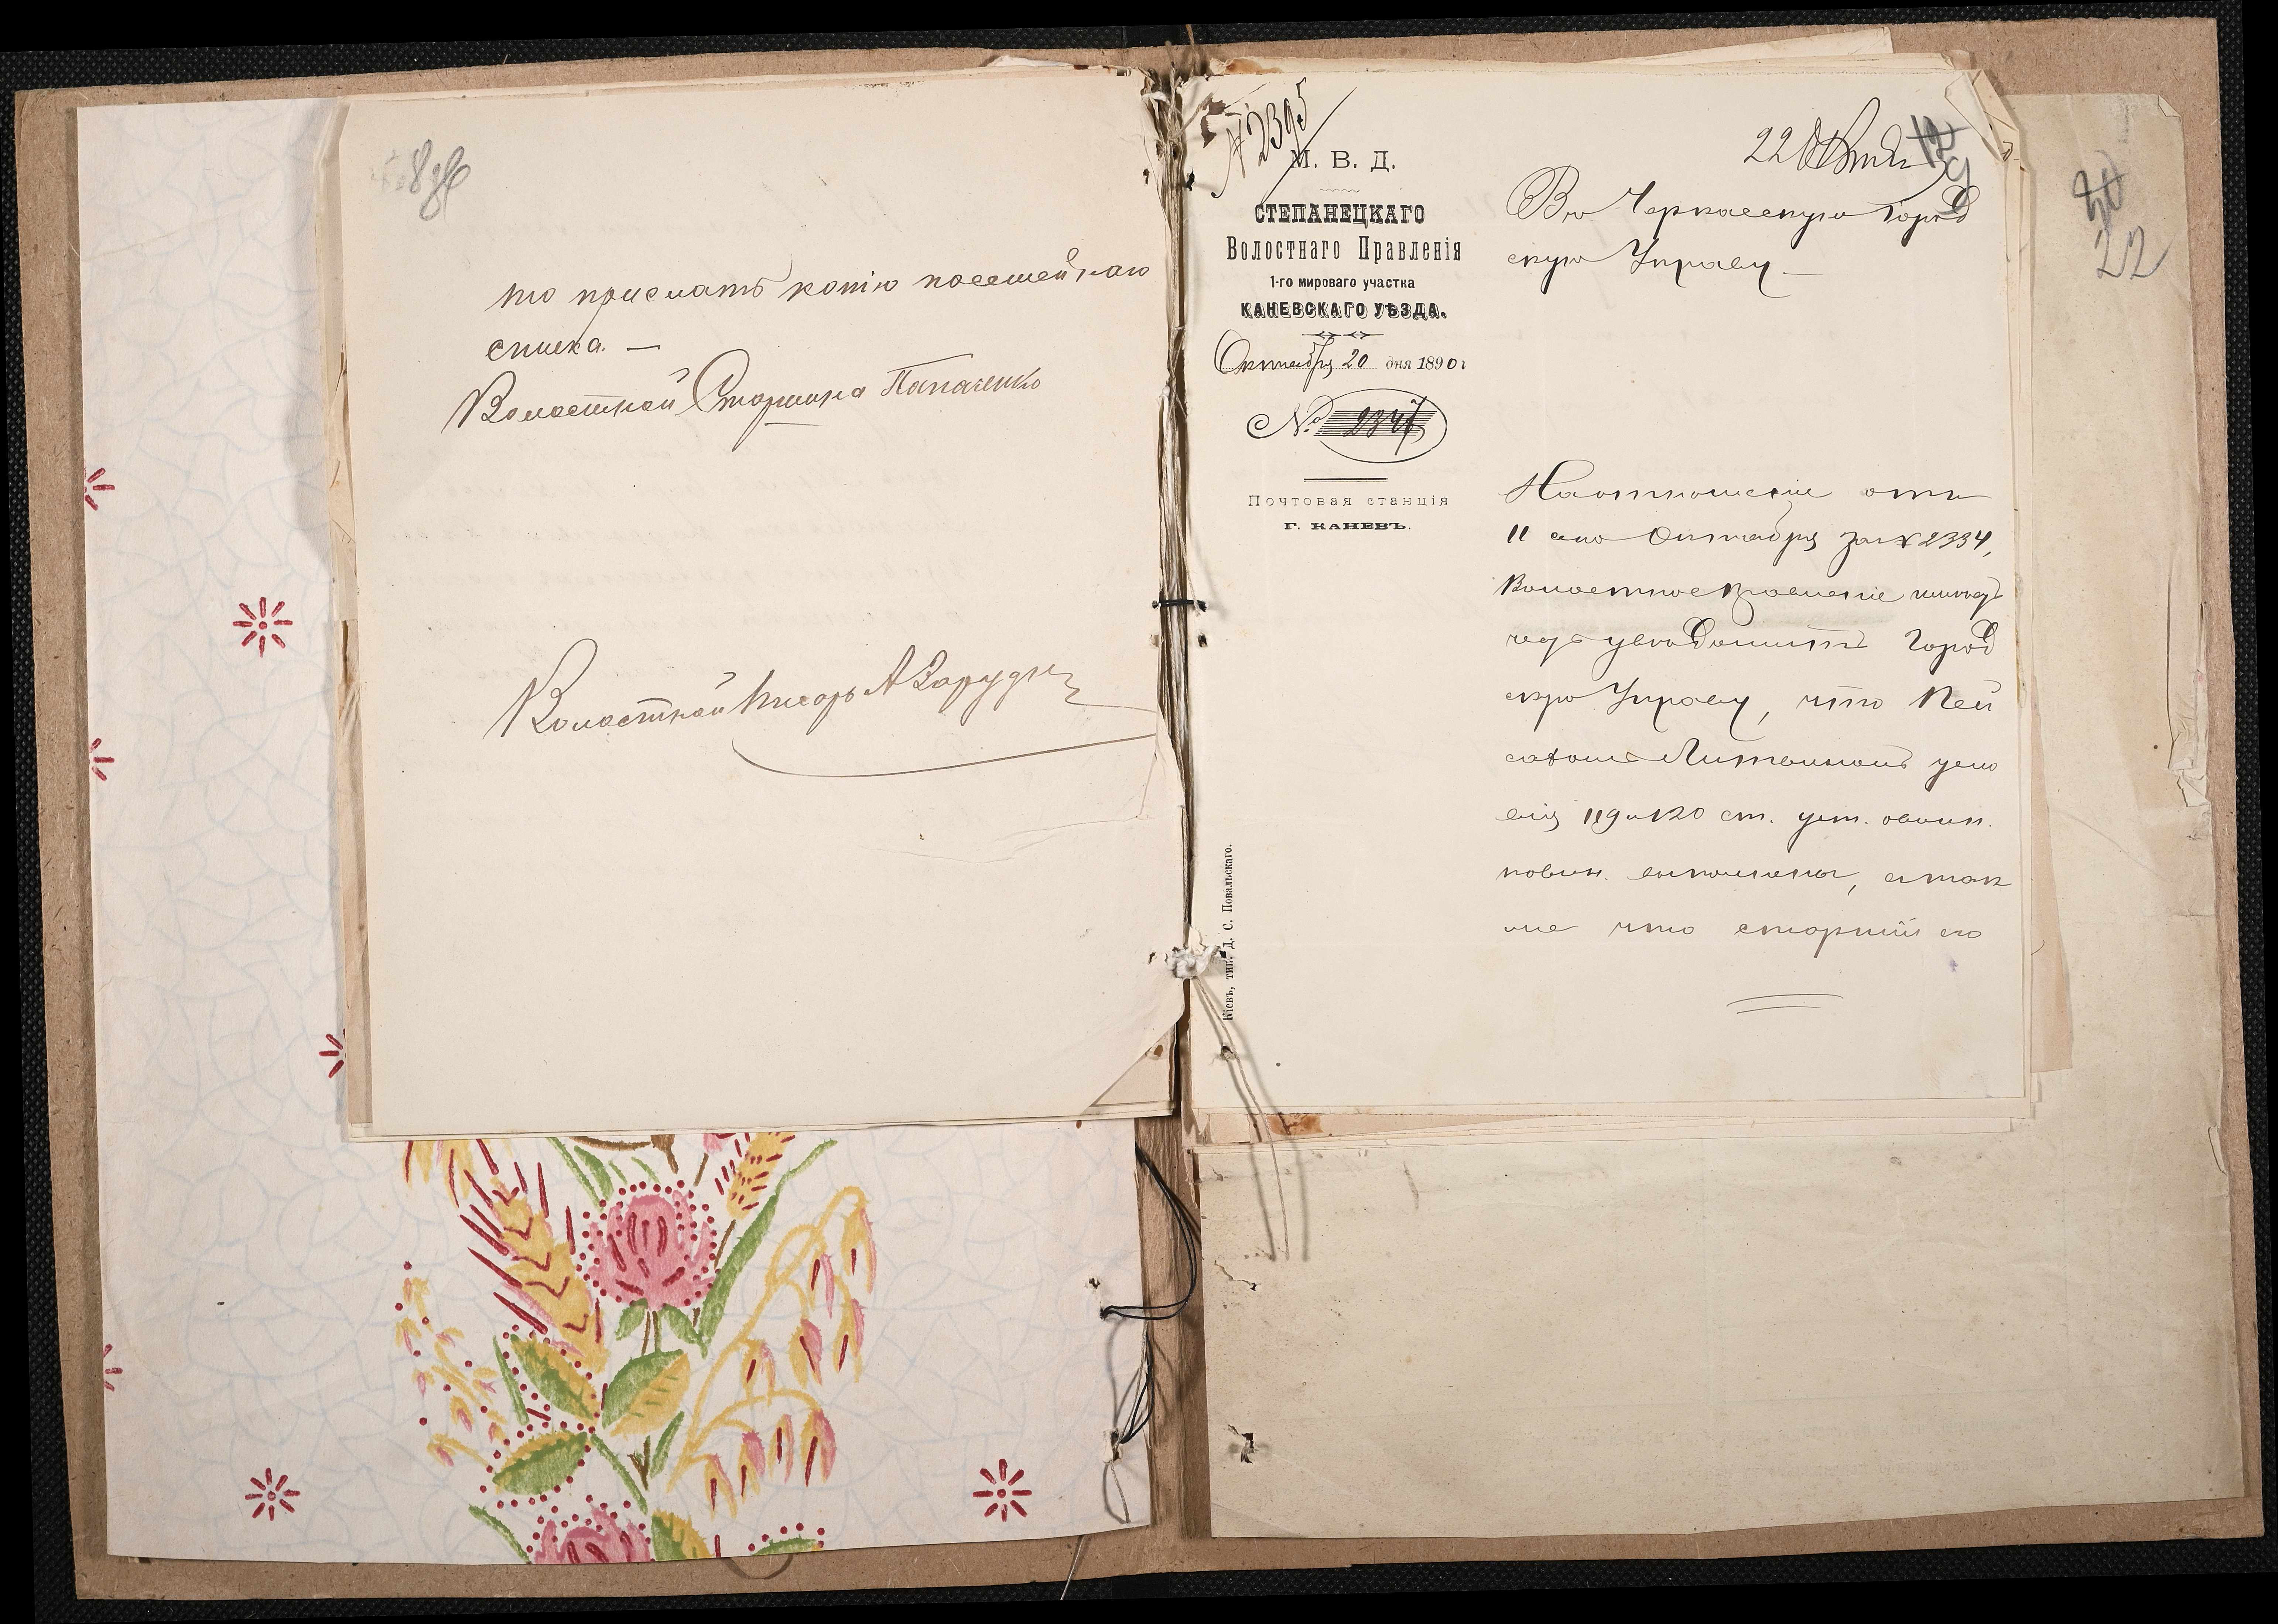 8 об
то прислать копію посемейнаго
списка. —
Волостной Старшина Папаченко
Волостной Писарь А Зарудн
№ 2395
М. В. Д.
СТЕПАНЕЦКАГО
Волостнаго Правленія
1-го мироваго участка
КАНЕВСКАГО УѢЗДА.
Октября 20 дня 1890 г
№ 2347
Почтовая станція
Г. КАНЕВЪ.
Кіевъ, тип. Д. С. Повальскаго.
22
12
9
Въ Черкасскую Город
скую Управу —
На отношеніе отъ
11 сего Октября за № 2334,
Волостное Правленіе
увѣдомить Город
скую Управу, что Пей
Литвиномъ усло
вія 119 и 120 ст. уст. о воин.
повин. выполнены, а так
же что старшій его
22